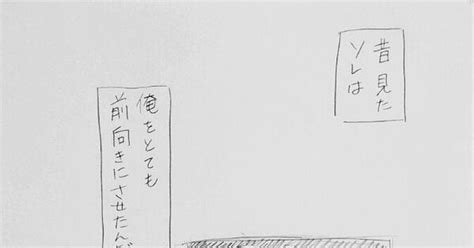 昔見た
ソレは
俺をとても
前向きにさせたんだ